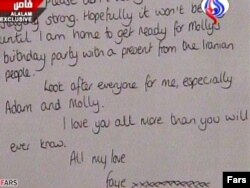 خاص
ALALAM
EXCLUSIVE
staying strong. Hopefully it won't be
until I am home to get ready for Molly's
birthday party with a present from the Iranian
people.
Look after everyone for me, especially
Adam and Molly.
I love you all more than you will
ever know.
All my love
faye xxxxxxxxxxxx
FARS
Fars